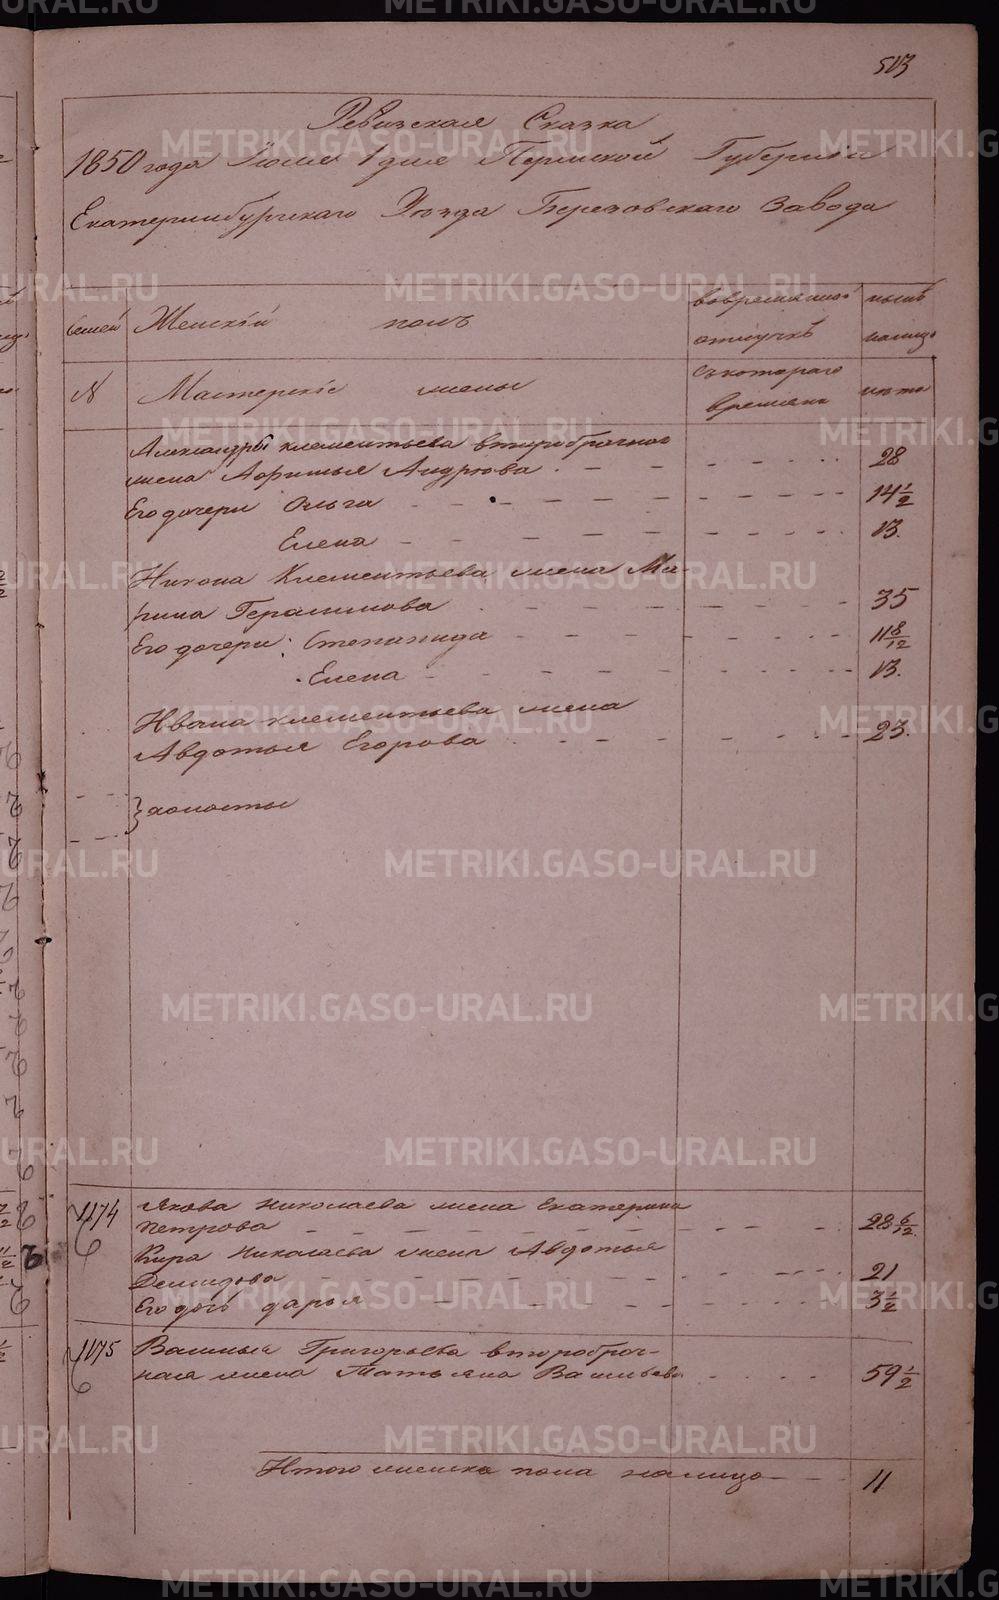 513
Ревизская Сказка
1850 года Июля 1 дня Пермской Губернии
Екатеринбургскаго Уезда Березовскаго Завода
Семей Женскій полъ во временной ныне
отлучкѣ налицо
№ Мастерскіе жены съ котораго лѣта
времени
Александры Клементьева второбрачная
жена Афимья Андреева 28
Его дочери Ольга 14 1/2
Елена 13.
Никона Клементьева жена Ма-
рина Герасимова 35
Его дочери: Степанида 11 8/12
Елена 13.
Ивана Клементьева жена
Авдотья Егорова 23.
} холосты
1174 Якова Николаева жена Екатерина
Петрова 28 6/12
Кира Николаева жена Авдотья
Демидова 21
Его дочь дарья 3 1/2
1175 Василья Григорьева второбрач-
ная жена Татьяна Васильева 59 1/2
Итого женска пола налицо 11
METRIKI.GASO-URAL.RU